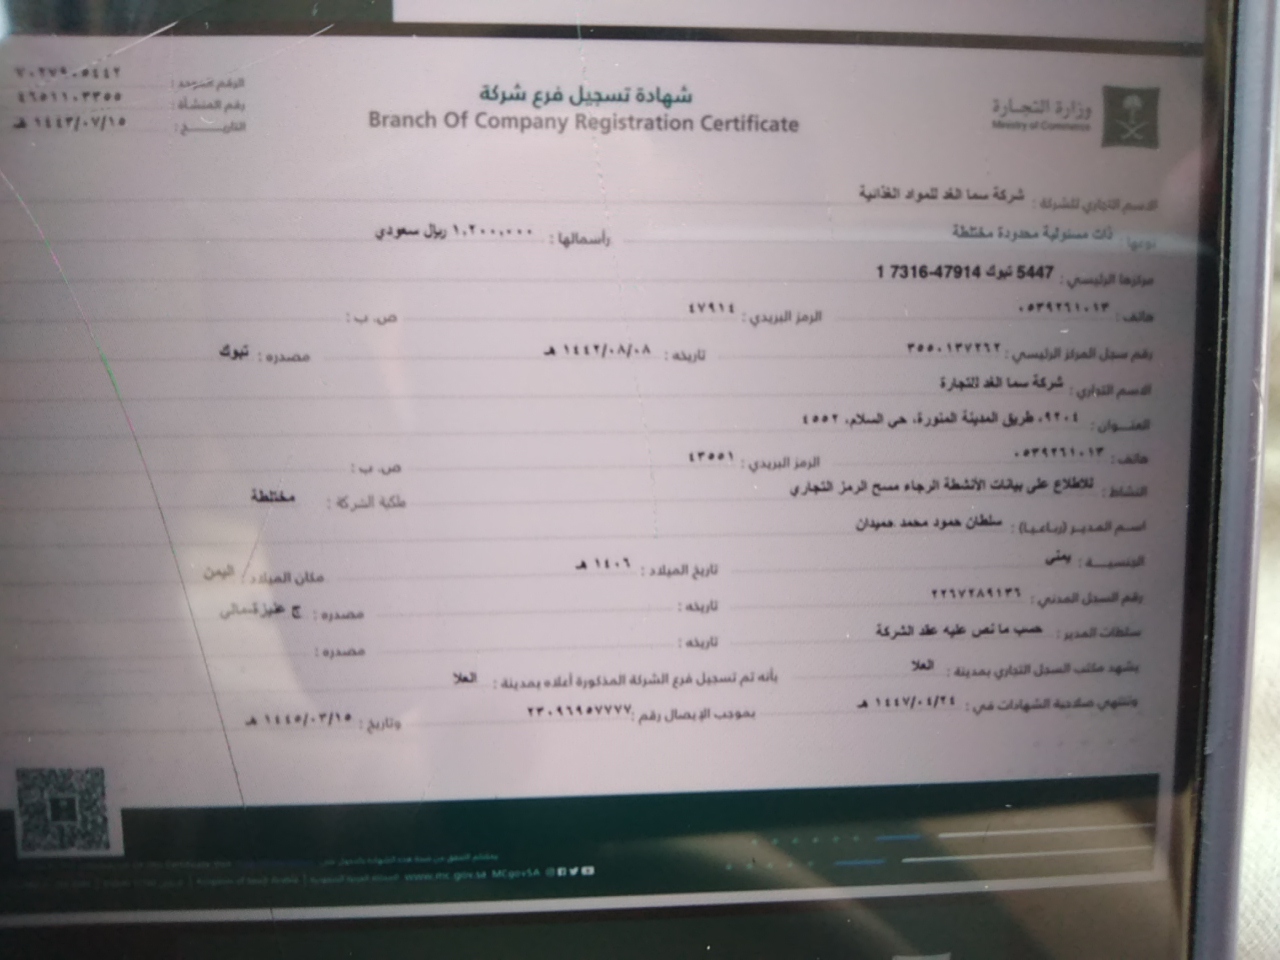 وزارة التجارة
Ministry of Commerce
شهادة تسجيل فرع شركة
Branch Of Company Registration Certificate
الرقم الموحد : ٧٠٢٧٩٠٥٤٤٢
رقم المنشأة : ٤٦٥١١٠٣٣٥٥
التاريــــخ : ١٤٤٣/٠٧/١٥ هـ
الاسم التجاري للشركة : شركة سما الغد للمواد الغذائية
نوعها : ذات مسئولية محدودة مختلطة رأسمالها : ١,٢٠٠,٠٠٠ ريال سعودي
مركزها الرئيسي : 5447 تبوك 47914-7316 1
هاتف : ٠٥٣٩٢٦١٠١٣ الرمز البريدي : ٤٧٩١٤ ص. ب :
رقم سجل المركز الرئيسي : ٣٥٥٠١٣٧٢٦٢ تاريخه : ١٤٤٢/٠٨/٠٨ هـ مصدره : تبوك
الاسم التجاري : شركة سما الغد للتجارة
العنـــوان : ٩٢٠٤، طريق المدينة المنورة، حي السلام، ٤٥٥٢
هاتف : ٠٥٣٩٢٦١٠١٣ الرمز البريدي : ٤٣٥٥١ ص. ب :
النشاط : للاطلاع على بيانات الأنشطة الرجاء مسح الرمز التجاري ملكية الشركة : مختلطة
اسم المدير (رباعيا) : سلطان حمود محمد حميدان
الجنسيـــة : يمنى تاريخ الميلاد : ١٤٠٦ هـ مكان الميلاد : اليمن
رقم السجل المدني : ٢٢٦٧٢٨٩١٣٦ تاريخه : مصدره :
سلطات المدير : حسب ما نص عليه عقد الشركة تاريخه : مصدره :
يشهد مكتب السجل التجاري بمدينة : العلا بأنه تم تسجيل فرع الشركة المذكورة أعلاه بمدينة : العلا
وتنتهي صلاحية الشهادات في : ١٤٤٧/٠٤/٢٤ هـ بموجب الإيصال رقم : ٢٣٠٩٦٩٥٧٧٧٧ وتاريخ : ١٤٤٥/٠٣/١٥ هـ
www.mc.gov.sa MCgovSA